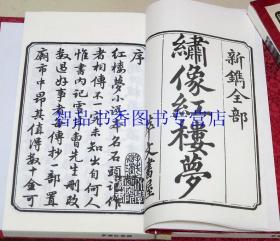 新鐫全部
繡像紅樓夢
序
紅樓夢小說本名石頭記作
者相傳不一究未知出自何人
惟書內記雪芹曹先生刪改
數過好事者每傳抄一部置
廟市中昂其值得數十金可
智品书香图书专卖店